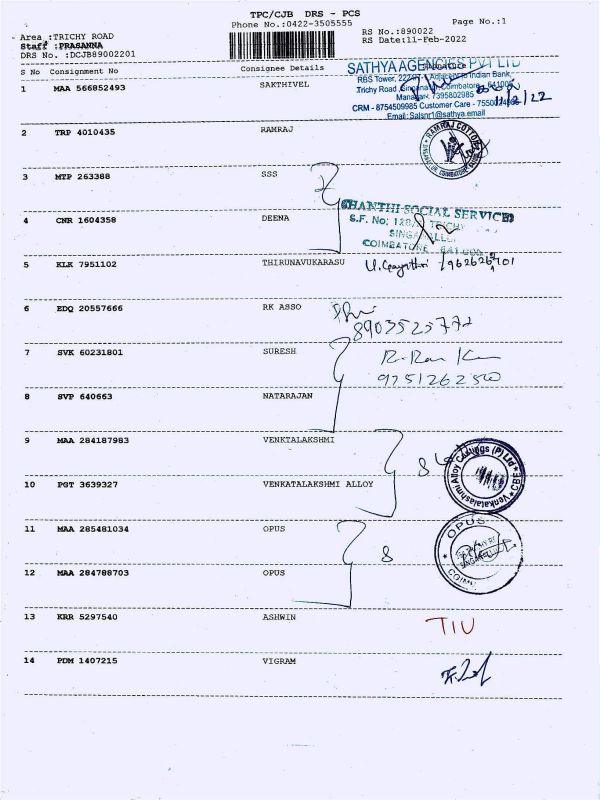 TPC/CJB DRS - PCS
Phone No.:0422-3505555
Page No.:1
Area :TRICHY ROAD
Staff :PRASANNA
DRS No. :DCJB89002201
RS No.:890022
RS Date:11-Feb-2022
S No Consignment No Consignee Details
SATHYA AGENCIES PVT LTD
RBS Tower, Adjacent to Indian Bank,
Trichy Road, Coimbatore
Manager: 7395802985
CRM - 8754509985 Customer Care -
Email: Salsnr1@sathya.email
11/2/22
1 MAA 566852493 SAKTHIVEL
2 TRP 4010435 RAMRAJ
RAMRAJ COTTON
COIMBATORE
3 MTP 263388 SSS
SHANTHI SOCIAL SERVICES
S.F. No: TRICHY
COIMBATORE
4 CNR 1604358 DEENA
5 KLK 7951102 THIRUNAVUKARASU
6 EDQ 20557666 RK ASSO
8903525772
7 SVK 60231801 SURESH
8 SVP 640663 NATARAJAN
9 MAA 284187983 VENKTALAKSHMI
Venkatalakshmi Alloy Castings (P) Ltd
CBE
10 PGT 3639327 VENKTALAKSHMI ALLOY
11 MAA 285481034 OPUS
8
OPUS
12 MAA 284788703 OPUS
13 KRR 5297540 ASHWIN
14 PDM 1407215 VIGRAM